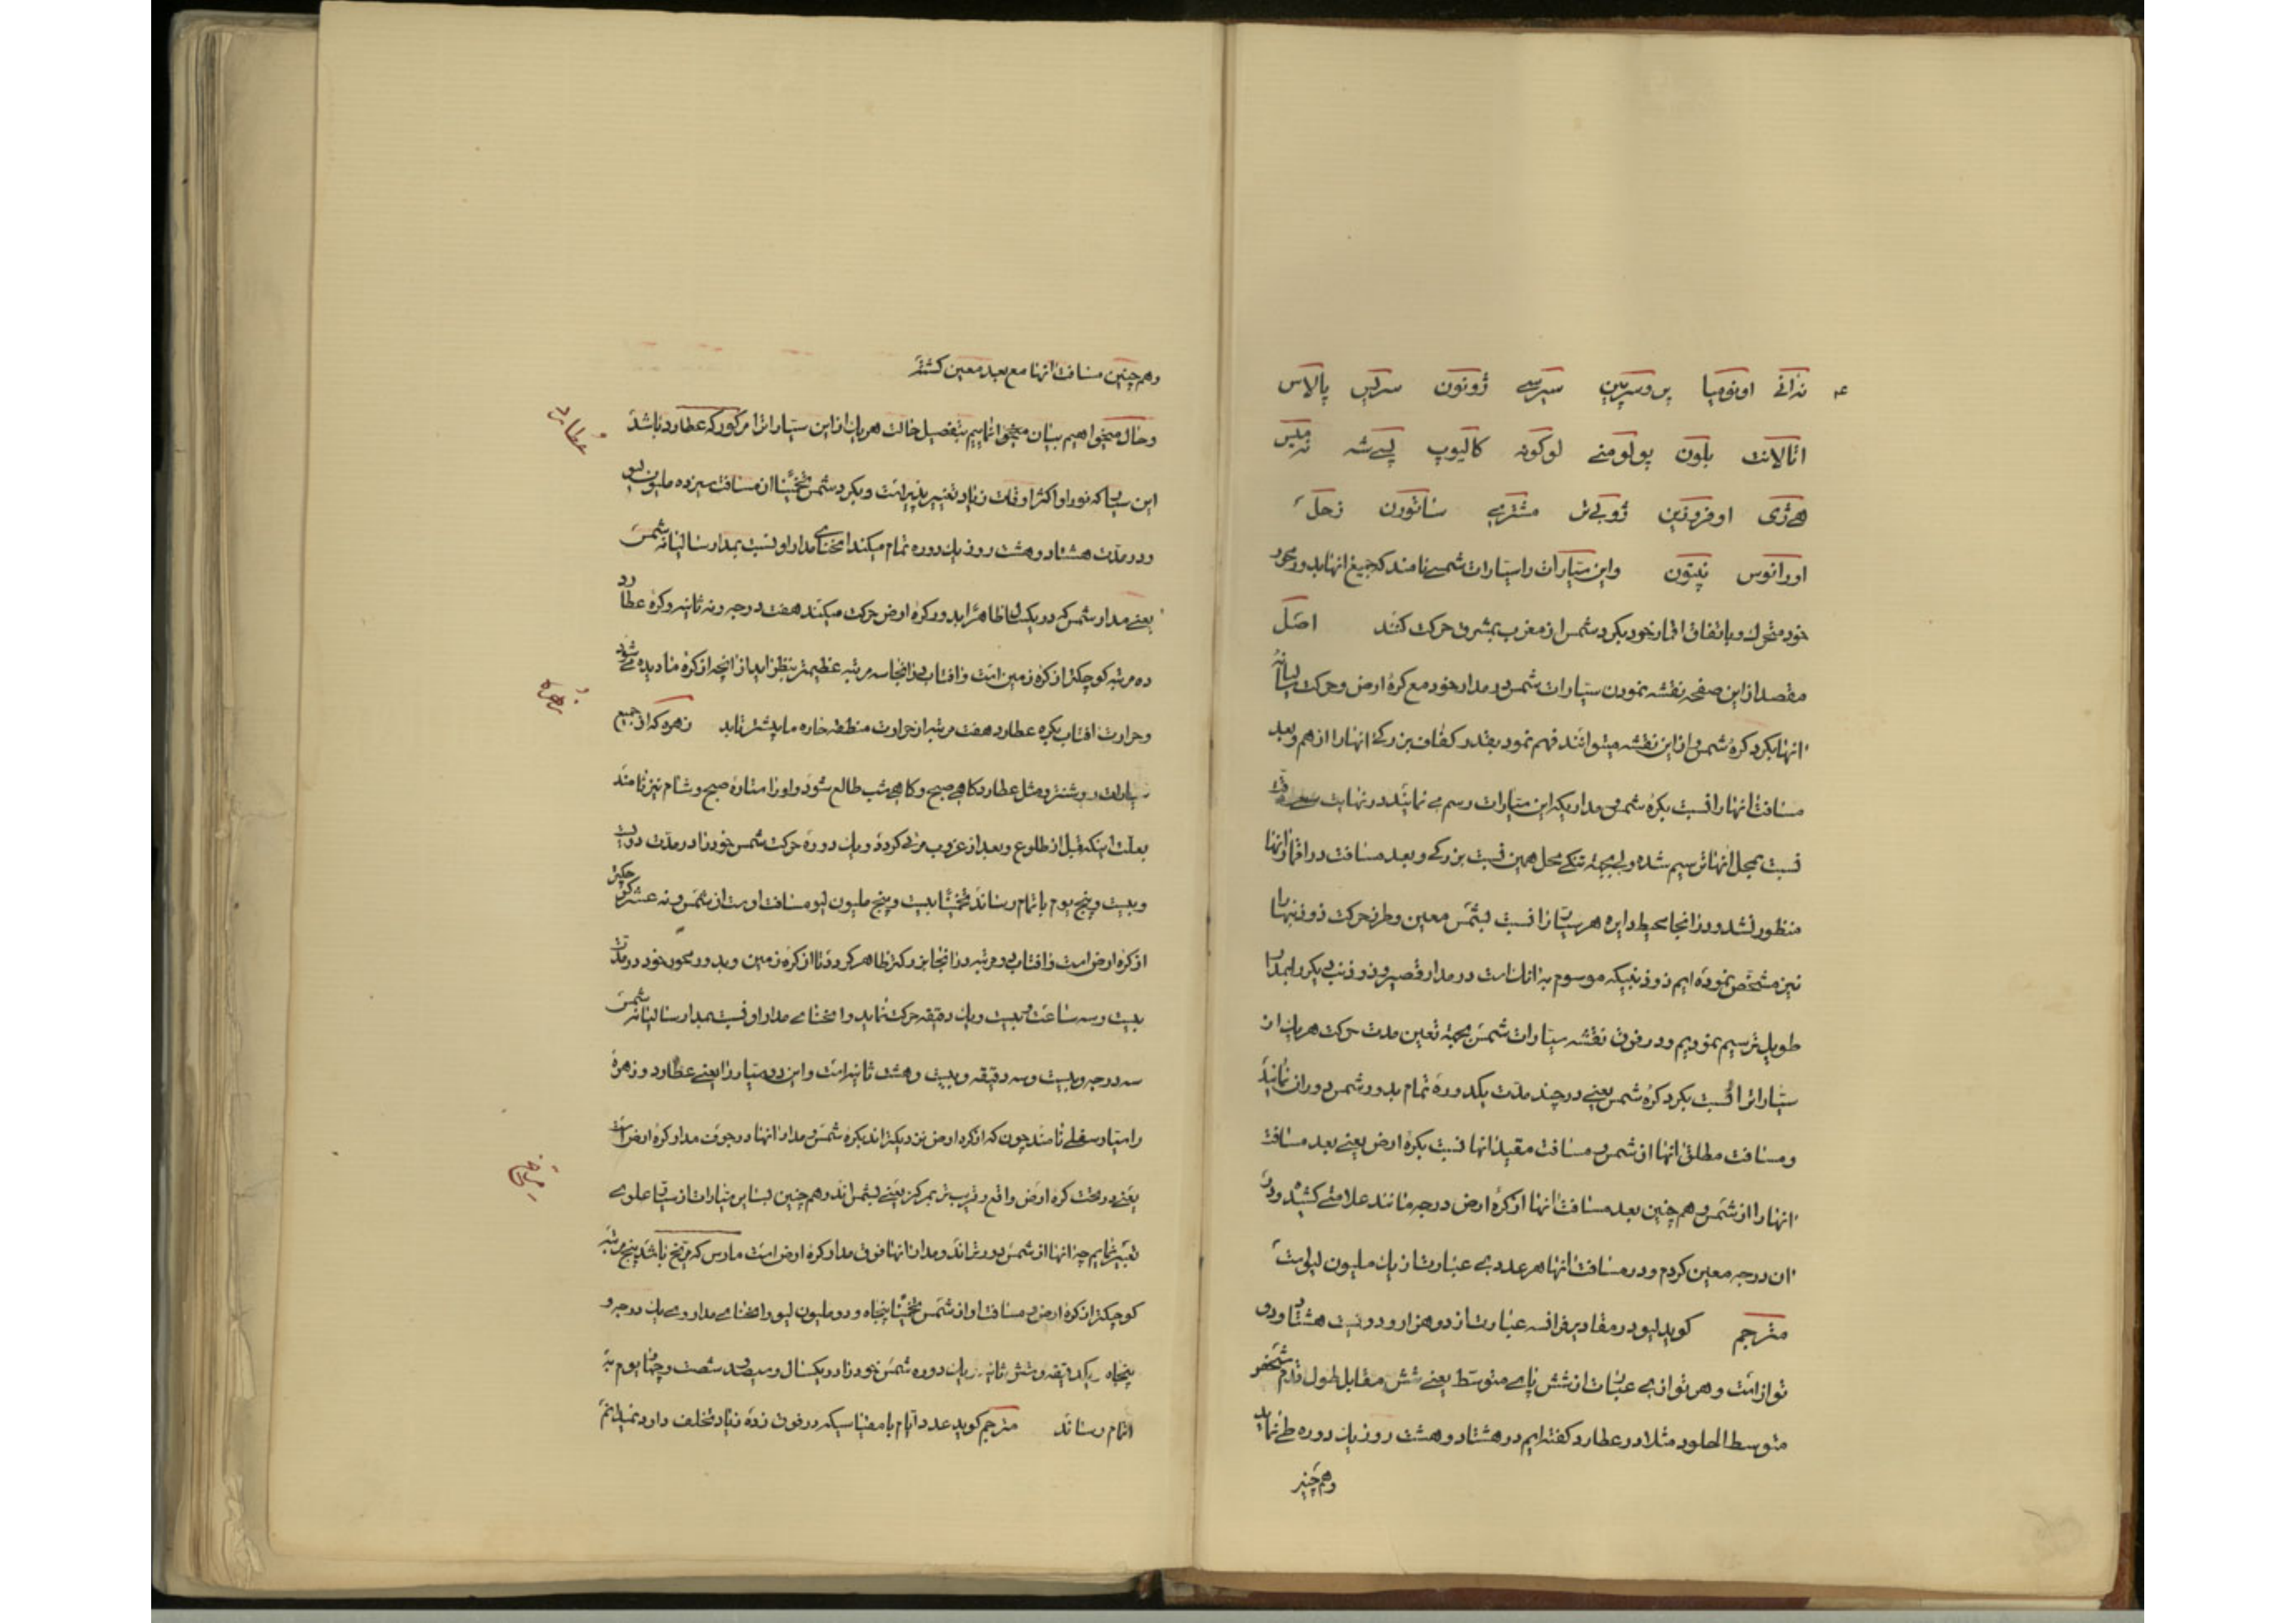 تراتی اونومیا پروسرپین سیرسه ژونون سرلیس پالاس
اتالانت بلون پولومنے لوکوته کالیوپ پسےشه تمیس
هےژی اوفروزین ژوپےتر مشترے ساتورن زحل
اورانوس نپتون واین سیارات را سیارات شمسے نامند که جمیع انها بدور محور
خود متحرک و باتفاق اقمار خود بکرد شمس از مغرب بمشرق حرکت کنند اصل
مقصد از این صفحه نقشه نمودن سیارات شمس در مدار خود مع کرهٔ ارض وحرکت سالیانهٔ
انها بکرد کرهٔ شمس و از این نقشه میتوانند فهم نمود بقدر کفاف بزرکے انها را از هم وبعد
مسافت انها را نسبت بکرهٔ شمس و مداریکه این سیارات رسم مے نمایند در نهایت
نسبت بمحل انها ترسیم شده ولے بجهة تنکے محل همین نسبت بزرکے وبعد مسافت در اقمار انها
منظور نشد ودر انجا محیط دایره هر سیار را نسبت بشمس معین وطرز حرکت ذوذنبها را
نیز مشخص نموده ایم ذوذنبیکه موسوم به انک است در مدار قصیر و ذوذنب دیکر را بمدار
طویل ترسیم نمودیم ودر فوق نقشه سیارات شمس بجهة تعین مدت حرکت هریک از
سیارات را نسبت بکرد کرهٔ شمس یعنے در چند مدت یکدورهٔ تمام بدور شمس دوران نمایند
ومسافت مطلق انها از شمس و مسافت مقید انها نسبت بکرهٔ ارض یعنے بعد مسافت
انها را از شمس و هم چنین بعد مسافت انها از کرهٔ ارض درجه مانند علامتے کشیده ودر
ان درجه معین کردم ودر مسافت انها هر عددے عبارت از یک ملیون لیو است
مترجم کوید لیو در مقادیر فرانسه عبارت از دو هزار و دویست هشتاد ودو
تواز است وهر توازے عبارت از شش پاے متوسط یعنے شش مقابل طول قدم شخص
متوسط الحلو مثلا در عطارد کفته ایم در هشتاد وهشت روز یک دوره طے نماید
وهم چنین
وهم چنین مسافت انها مع بعد معین کشته
وحال میخواهیم بیان میخوانمایم بتفصیل حالت هریک از این سیارات را مرکور که عطارد باشد
عطارد
این سیاره که نور او اکثر اوقات زیاد تغییر پذیر است و بکرد شمس تخمینا از مسافت سیزده ملیون لیو
ودر مدت هشتاد وهشت روز یک دوره تمام میکند انحناے مدار او نسبت بمدار سالیانه شمس
یعنے مدار شمس که در یکسال ظاهرا بدور کرهٔ ارض حرکت میکند هفت درجه ونه ثانیه وکرهٔ عطارد
ده مرتبه کوچکتر از کرهٔ زمین است و افتاب در انجا سه مرتبه عظیمتر بنظر اید از انچه از کرهٔ ما دیده مے شود
زهره
وحرارت افتاب بکرهٔ عطارد هفت مرتبه از حرارت منطقه حاره ما بیشتر تابد زهره که از جمیع
سیارات روشنتر ومثل عطارد کاهے صبح وکاهے شب طالع شود و او را ستاره صبح وشام نیز نامند
بعلت اینکه قبل از طلوع وبعد از غروب مرئی کردد ویک دوره حرکت شمس خود را در مدت دویست
وبیست وپنج یوم باتمام رساند تخمینا بیست وپنج ملیون لیو مسافت او است از شمس و نه عشر کوچکتر
از کرهٔ ارض است و افتاب دو مرتبه در انجا بزرکتر ظاهر کردد تا از کرهٔ زمین وبدور محور خود در مدت
بیست وسه ساعت وبیست ویک دقیقه حرکت نماید و انحناے مدار او نسبت بمدار سالیانه شمس
سه درجه وبیست وسه دقیقه وبیست وهشت ثانیه است واین دو سیار را یعنے عطارد وزهرهٔ
را سیار سفلے نامند چون که از کره ارض نزدیکتر اند بکرهٔ شمس و مدار انها در جوف مدار کرهٔ ارض است
مریخ
یعنے در تحت کرهٔ ارض واقع وقریب تر بمرکز یعنے بشمس اند وهم چنین بسایر سیارات از سیار علوے
تعبیر نمایم چه انها از شمس دورتر اند ومدار انها فوق مدار کرهٔ ارض است مارس که مریخ باشد پنج مرتبه
کوچکتر از کرهٔ ارض و مسافت او از شمس تخمینا پنجاه ودو ملیون لیو و انحناے مدار وے یک درجه و
پنجاه یکدقیقه وشش ثانیه یک دوره شمس خود را در یکسال وسیصد شصت وچهار یوم به
اتمام رساند مترجم کوید عدد ایام با مقیاسیکه در فوق زده زیاد تخلف دارد